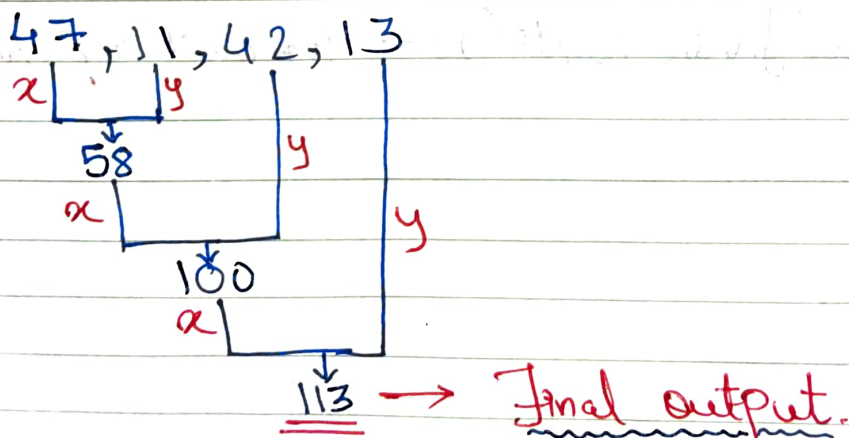 47, 11, 42, 13
x y
58
y
x
y
100
x
113 → Final output.